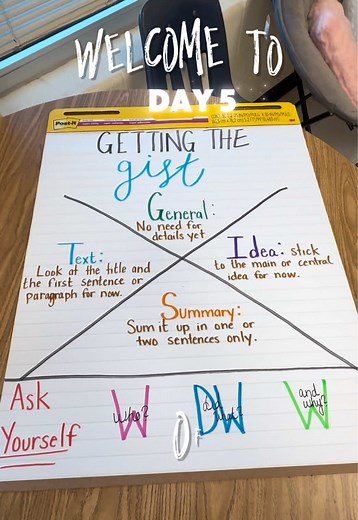 WELCOME TO
DAY 5
Post-it
GETTING THE
gist
General:
No need for
details yet
Text:
Look at the title and
the first sentence or
paragraph for now.
Idea: stick
to the main or central
idea for now.
Summary:
Sum it up in one or
two sentences only.
Ask
Yourself
W who?
DW did what?
W and why?
OF